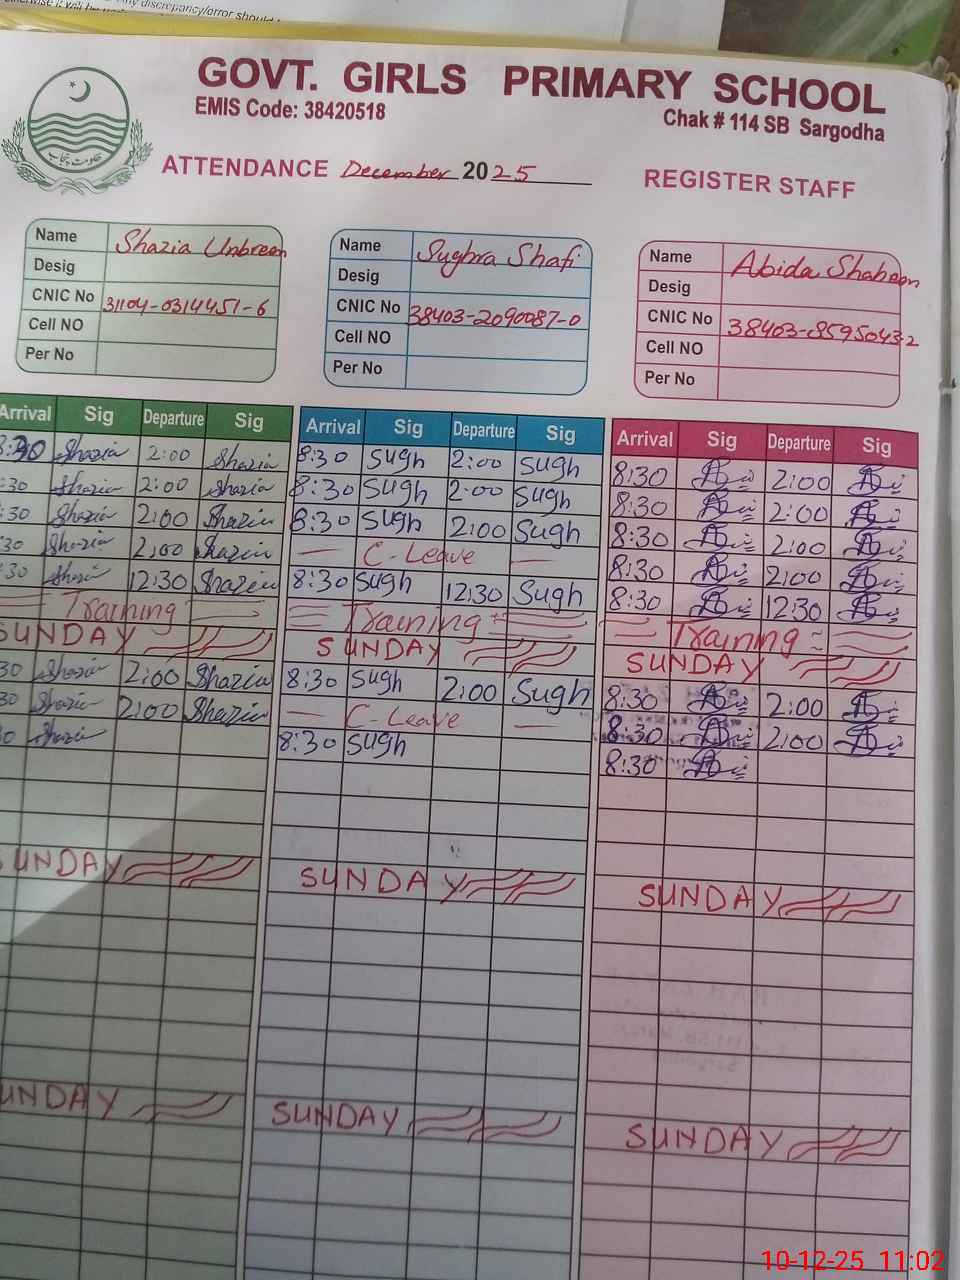 any discrepancy/error should
GOVT. GIRLS PRIMARY SCHOOL
EMIS Code: 38420518
Chak # 114 SB Sargodha
حکومت پنجاب
ATTENDANCE December 2025
REGISTER STAFF
Name Shazia Unbreen
Desig
CNIC No 31104-0314451-6
Cell NO
Per No
Name Sughra Shafi
Desig
CNIC No 38403-2090087-0
Cell NO
Per No
Name Abida Shaheen
Desig
CNIC No 38403-8595043-2
Cell NO
Per No
Arrival Sig Departure Sig
8:30 Shazia 2:00 Shazia
:30 Shazia 2:00 Shazia
:30 Shazia 2:00 Shazia
:30 Shazia 2:00 Shazia
:30 Shazia 12:30 Shazia
Training
SUNDAY
30 Shazia 2:00 Shazia
30 Shazia 2:00 Shazia
0 Shazia
SUNDAY
UNDAY
Arrival Sig Departure Sig
8:30 Sugh 2:00 Sugh
8:30 Sugh 2:00 Sugh
8:30 Sugh 2:00 Sugh
— C-Leave —
8:30 Sugh 12:30 Sugh
Training
SUNDAY
8:30 Sugh 2:00 Sugh
— C-Leave —
8:30 Sugh
SUNDAY
SUNDAY
Arrival Sig Departure Sig
8:30 2:00
8:30 2:00
8:30 2:00
8:30 2:00
8:30 12:30
Training
SUNDAY
8:30 2:00
8:30 2:00
8:30
SUNDAY
SUNDAY
10-12-25 11:02